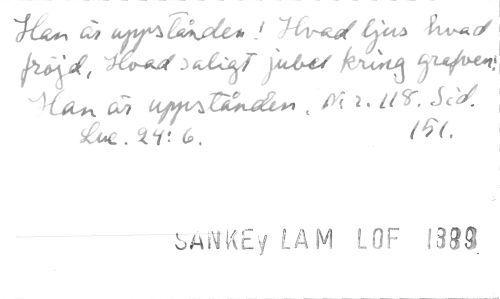 Han är uppstånden! Hvad ljus hvad
fröjd, Hvad saligt jubel kring grafven!
Han är uppstånden. Nr. 118. Sid.
Luc. 24: 6. 151.
SANKEy LAM LOF 1889